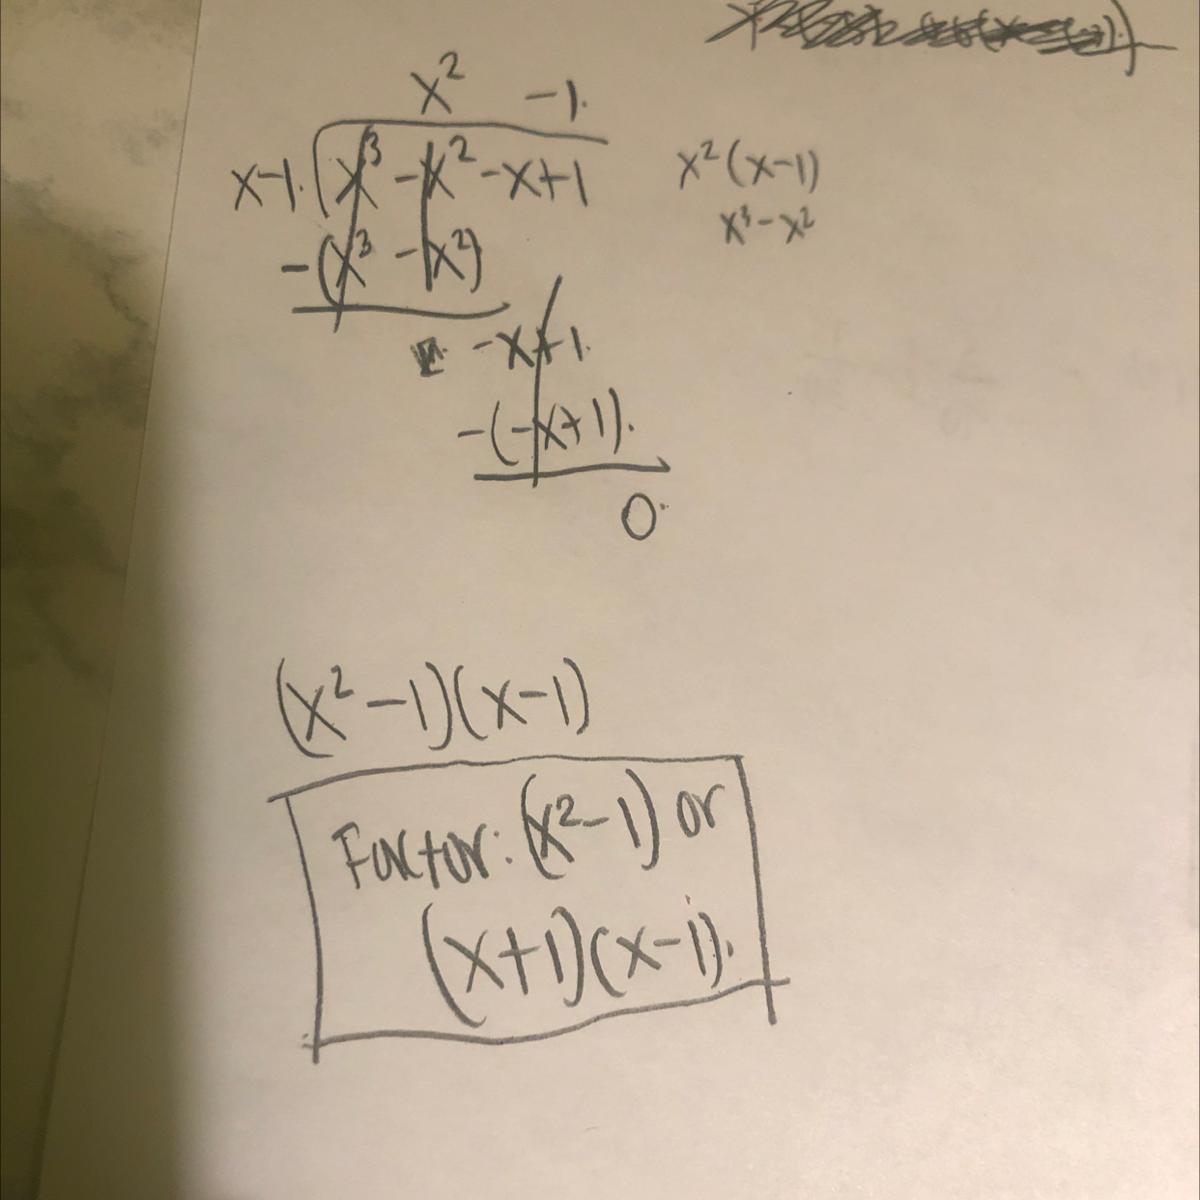 x² -1.
x-1. x³ - x² - x + 1
x² (x-1)
x³ - x²
-(x³ - x²)
-x+1.
-(-x+1).
0.
(x² - 1)(x-1)
Factor: (x²-1) or
(x+1)(x-1).